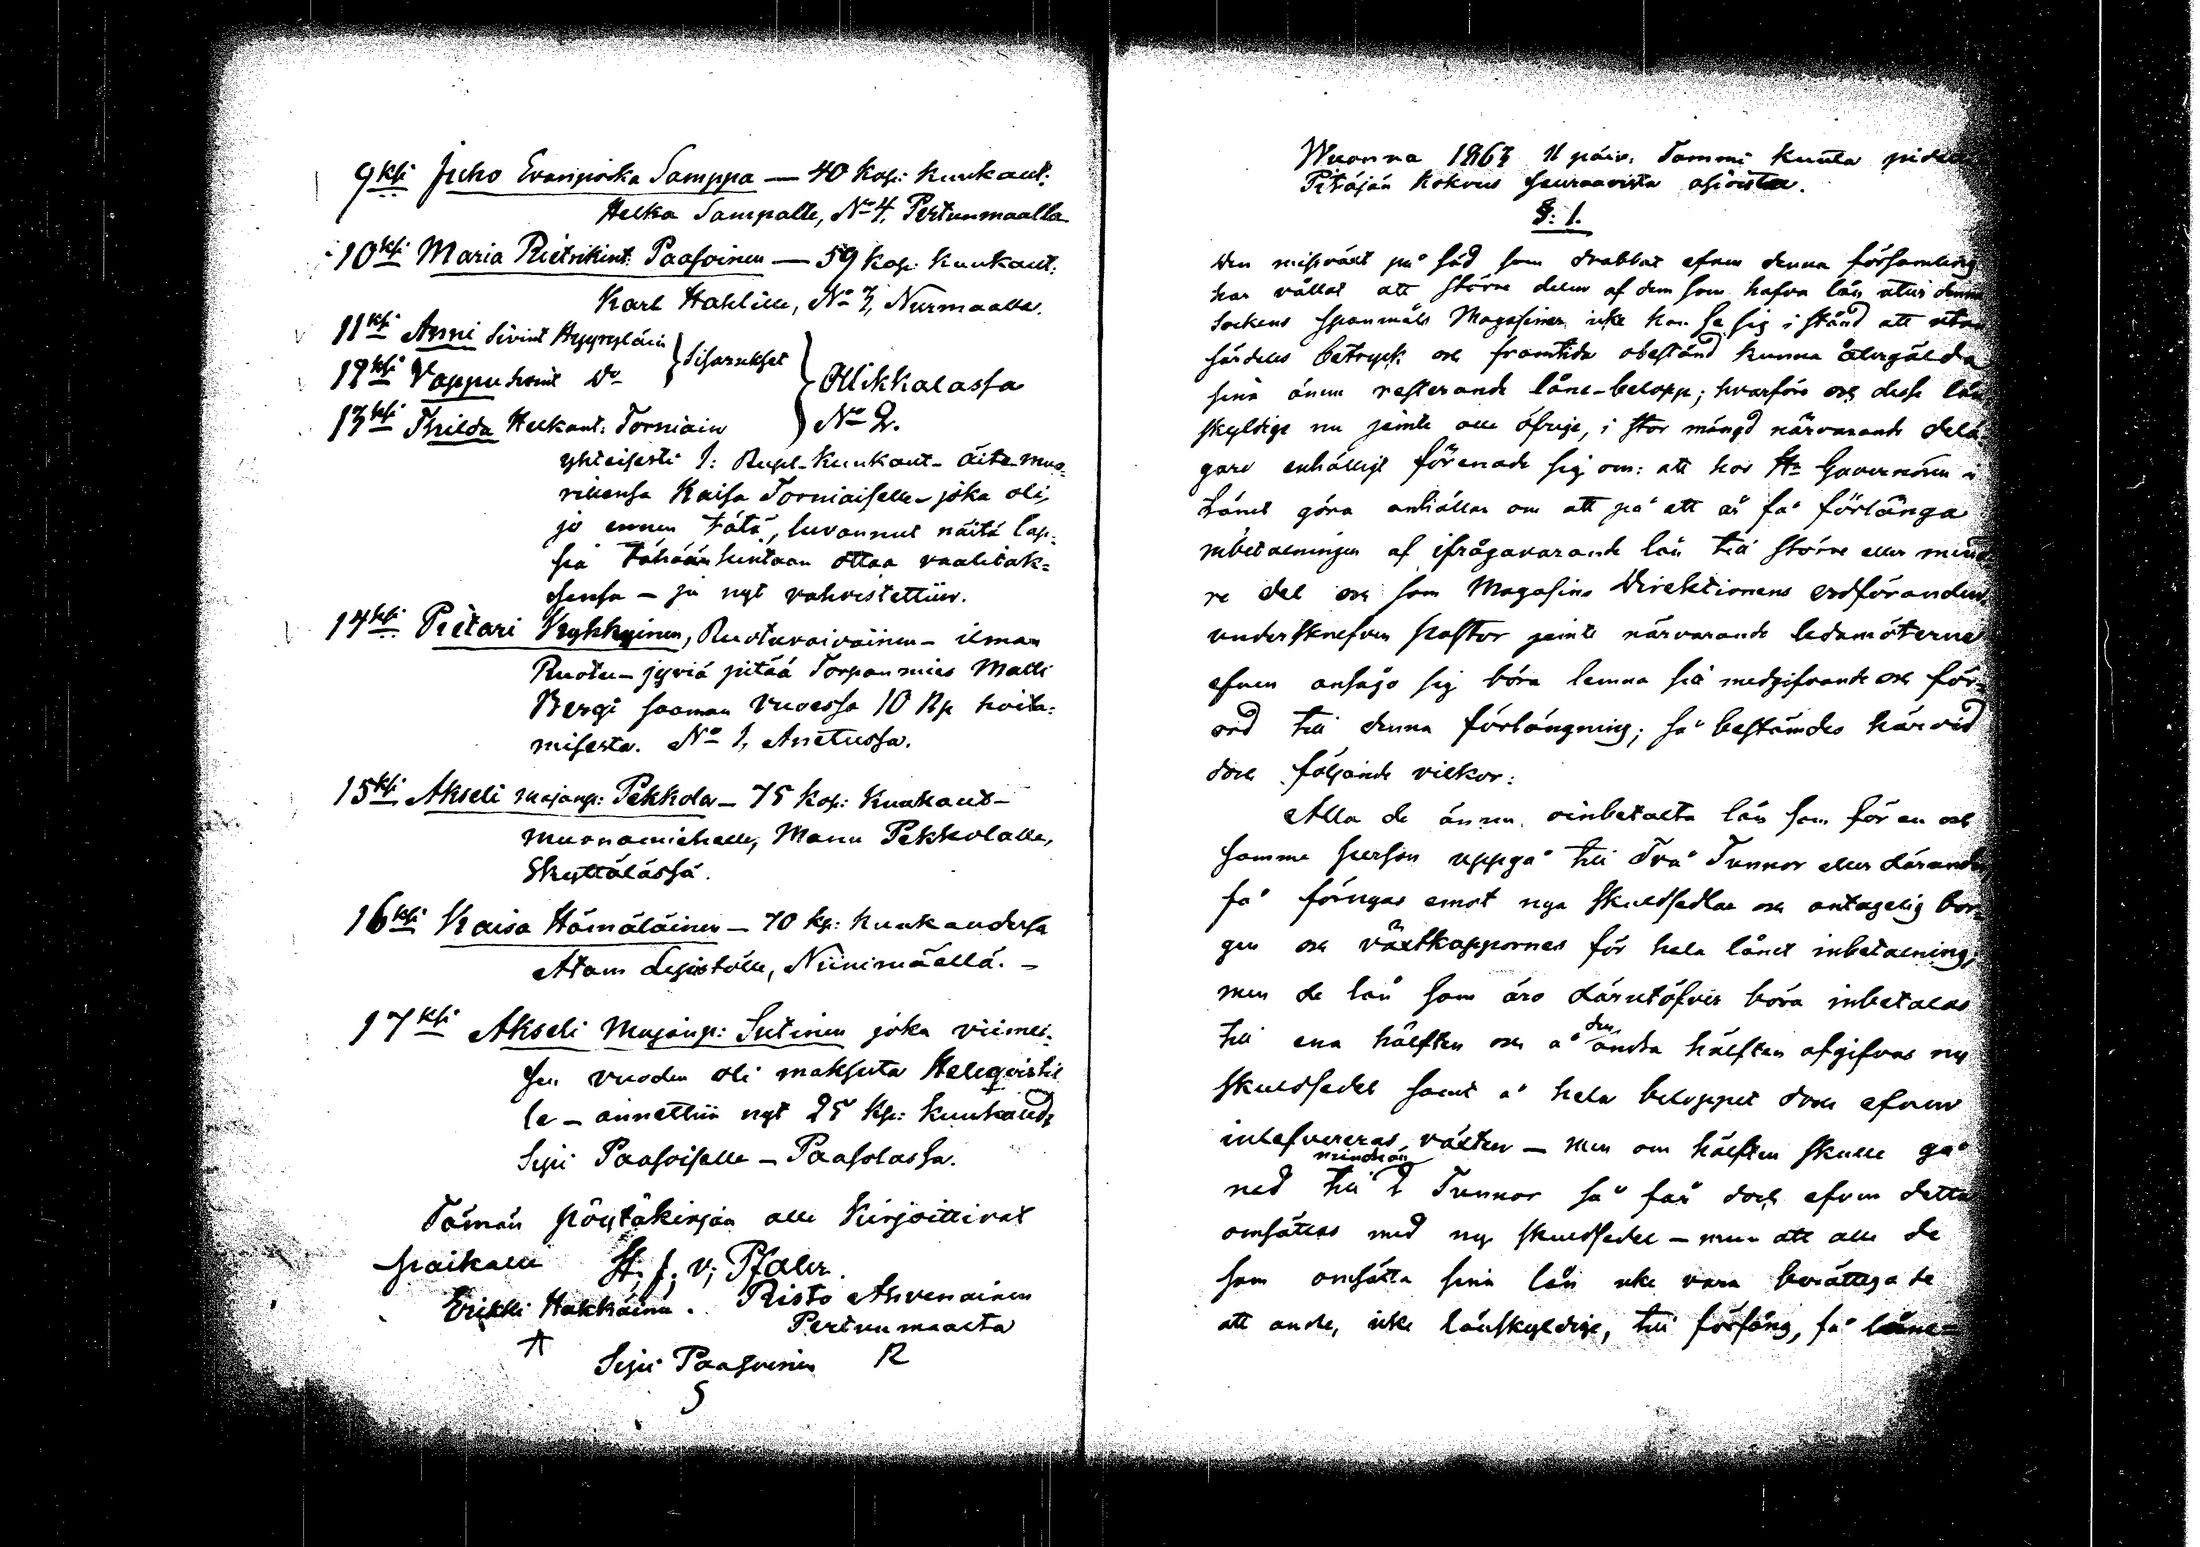 9ksi Juho Evanpoika Samppa — 40 Kop: Kuukaut:
Helka Sampalle, No 4, Pertunmaalla
10ksi Maria Pietrikint: Paasoinen — 59 kop: Kuukaut:
Karl Hahlille, No 7, Nurmaalla.
11ksi Anni Sivint Hyyryläin
12ksi Vappu Do Sisarukset
13ksi Thilda Heikant: Torniain
Ollikkalassa
No 2.
yhteisesti 1: Rupl. Kuukaut- äite-muo-
rillensa Kaisa Torniaiselle - joka oli,
jo ennen tätä, luvannut näitä lap-
sia tähään hintaan ottaa vaalitak-
sensa — ja nyt vahvistettiin.
14ksi Pietari Kykkyinen, Ruotuvaivainen - ilman
Ruotu-jyviä pitää Torpanmies Matti
Bergi saaman Vuoessa 10 Rp hoita-
misesta. No 1, Anetussa.
15ksi Akseli Majanp: Pekkola - 75 Kop: Kuukaut-
muonamiehelle, Manu Pekkolalle,
Skyttälässä.
16ksi Kaisa Hämäläinen - 70 kp: kuukaudessa
Atam Lepistölle, Niinimäellä. -
17ksi Akseli Majanp: Sutinen joka viimei-
sen vuoden oli maksuta Helleqvistil
le - annettiin nyt 25 Kp: kuukaud:
Sipi Paasoiselle - Paasolassa.
Tämän pöytäkirjan alle Kirjoittivat
paikalle St. J. v. Pfaler.
Erikki Hakkainen. Risto Ahvenainen
Pertunmaalta
Sipi Paasoinen R
S
Wuonna 1863 11 päiv. Tammi kuuta
Pitäjän kokous seuraavista asioista.
§: 1.
Den missväxt på säd som drabbat efven denna församling
har vållat att större delen af dem som hafva lån utur denna
sockens Spanmåls Magasiner icke kan se sig i stånd att utan
särdeles betryck och framtida obestånd kunna återgälda
sina ännu resterande låne-belopp; hvarföre och desse lån
skyldige nu jemte alle öfrige, i stor mängd närvarande delä
gare enhälligt förenade sig om: att hos Hr Guvernören i
Länet göra anhållan om att på ett år få förlänga
inbetalningen af ifrågavarande lån till större eller mind
re del och som Magasins Direktionens ordförande,
underskrefven pastor jemte närvarande ledamöterne
efven ansågo sig böra lemna sitt medgifvande och för-
ord till denna förlängning; så bestämdes härvid
dock följande vilkor:
Alla de ännu oinbetalta lån som för en och
samma person uppgå till Två Tunnor eller därunder
få förnyas emot nya skuldsedlar och antagelig bor-
gen och växtkappornes för hela lånet inbetalning;
men de lån som äro därutöfver böra inbetalas
till ena hälften och å den andra hälften afgifvas ny
skuldsedel samt å hela beloppet dock efven
inlefvereras växten - men om hälften skulle gå
ned till mindre än 2 Tunnor så får dock efven detta
omsättas med ny skuldsedel - men att alla de
som omsätta sina lån icke vara berättigade
att andre, icke lånskyldige, till förfång, få låne-